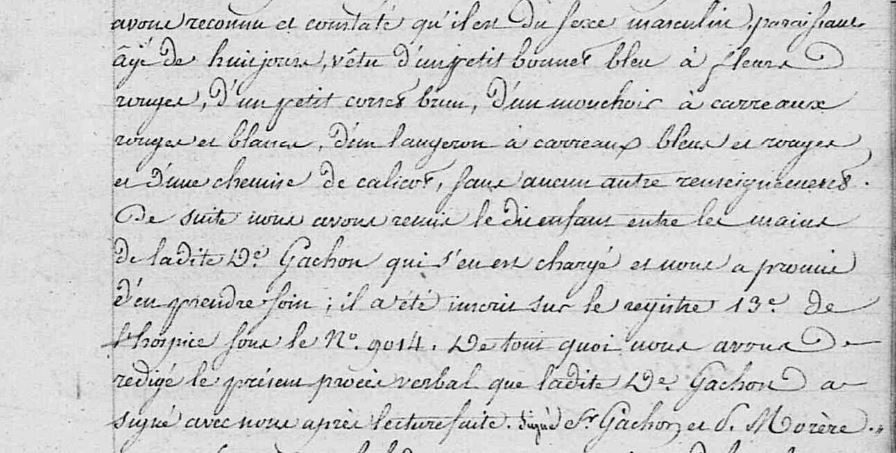 avons reconnu et constaté qu'il est du sexe masculin, paraissant
âgé de huit jours, vêtu d'un petit bonnet bleu à fleurs
rouges, d'un petit corset brun, d'un mouchoir à carreaux
rouges et blancs, d'un langeron à carreaux bleus et rouges
et d'une chemise de calicot, sans aucun autre renseignement.
De suite nous avons remis le dit enfant entre les mains
de ladite De. Gachon qui s'en est chargé et nous a promis
d'en prendre soin ; il a été inscrit sur le registre 13e. de
l'hospice sous le No. 9014. De tout quoi nous avons
redigé le présent procès verbal que ladite De. Gachon a
signé avec nous après lecture faite. Signé Sr. Gachon et P. Morère.